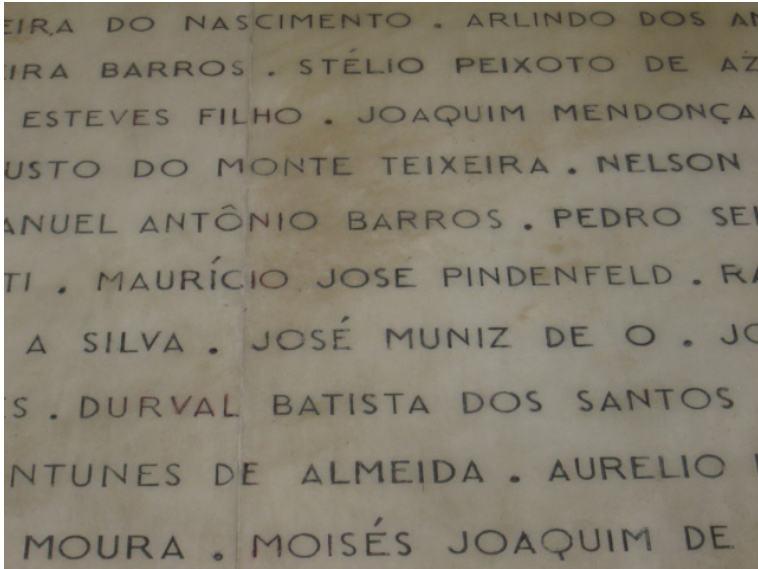 EIRA DO NASCIMENTO . ARLINDO DOS AN
IRA BARROS . STÉLIO PEIXOTO DE AZ
ESTEVES FILHO . JOAQUIM MENDONÇA
USTO DO MONTE TEIXEIRA . NELSON
ANUEL ANTÔNIO BARROS . PEDRO SE
TI . MAURÍCIO JOSE PINDENFELD . RA
A SILVA . JOSÉ MUNIZ DE O . JO
S . DURVAL BATISTA DOS SANTOS
NTUNES DE ALMEIDA . AURELIO
MOURA . MOISÉS JOAQUIM DE